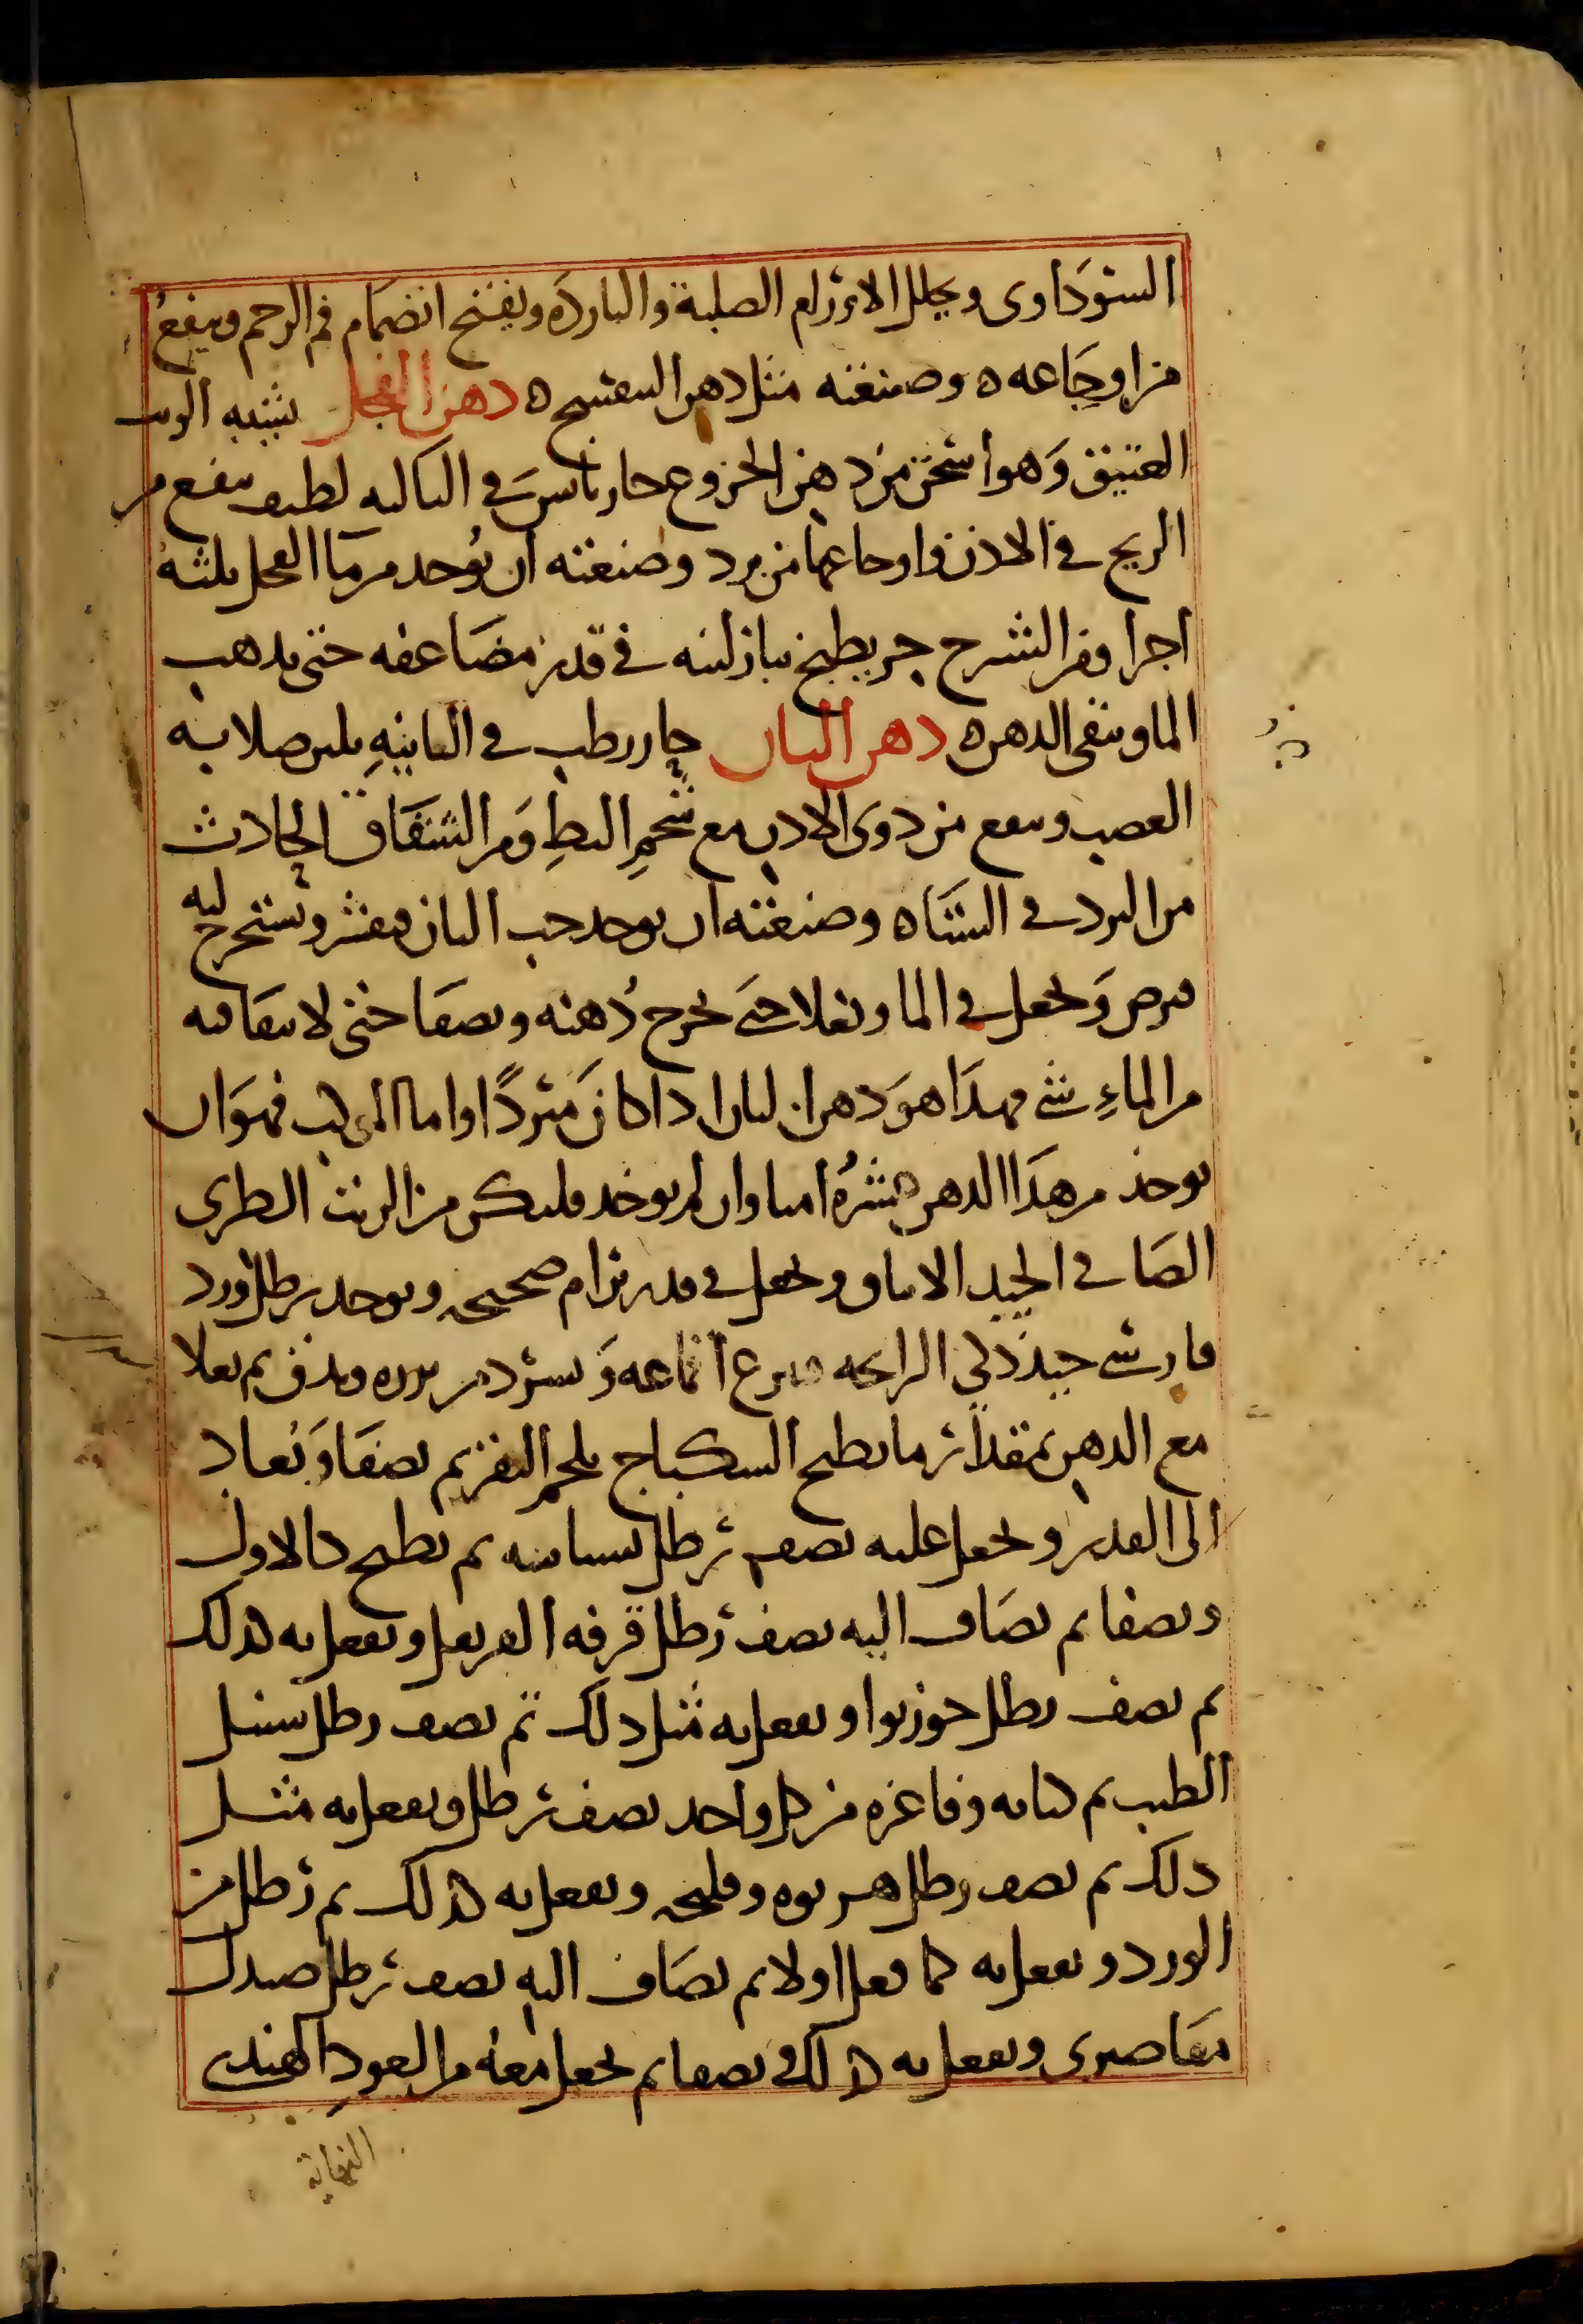 السوداوى ويحلل الاورام الصلبة والبارده ويفتح انضمام فم الرحم وينفع
من اوجاعه ه وصنعته مثل دهن البنفسج ه دهن الفجل يشبه الزيت
العتيق وهو اسخن من دهن الخروع حار يابس في الثالثه لطيف ينفع من
الريح في الاذن واوجاعها من برد وصنعته ان يوخذ من ما الفجل ثلثه
اجزا ومن الشيرج جز يطبخ بنار لينه في قدر مضاعفه حتى يذهب
الما ويبقى الدهن ه دهن البان حار رطب في الثانيه يلين صلابه
العصب وينفع من دوى الاذن مع شحم البط ومن الشقاق الحادث
من البرد في الشتا ه وصنعته ان يوخذ حب البان فيقشر ويستخرج لبه
فيرض ويجعل في الما ويغلا حتى يخرج دهنه ويصفا حتى لا يبقا فيه
من الماء شي فهذا هو دهن البان اذا كان مفردا واما المركب فهو ان
يوخذ من هذا الدهن عشره امنا وان لم يوخذ فليكن من الزيت الطري
الصافي الجيد الانفاق ويجعل في قدر برام صحيحه ويوخذ رطل ورد
فارسي جيد ذكي الرايحه فينزع اقماعه و من بزره ويدق ثم يغلا
مع الدهن بمقدار ما يطبخ السكباج بلحم البقر ثم يصفا ويعاد
الى القدر ويجعل عليه نصف رطل بسباسه ثم يطبخ كالاول
ويصفا ثم يضاف اليه نصف رطل قرفه القرنفل ويفعل به كذلك
ثم نصف رطل جوز بوا ويفعل به مثل ذلك ثم نصف رطل سنبل
الطيب ثم كبابه وفاغره من كل واحد نصف رطل ويفعل به مثل
ذلك ثم نصف رطل هرنوه وفليجه ويفعل به كذلك ثم رطل من
الورد ويفعل به كما فعل اولا ثم يضاف اليه نصف رطل صندل
مقاصيرى ويفعل به كذلك ويصفا ثم يجعل معه من العود الهندى